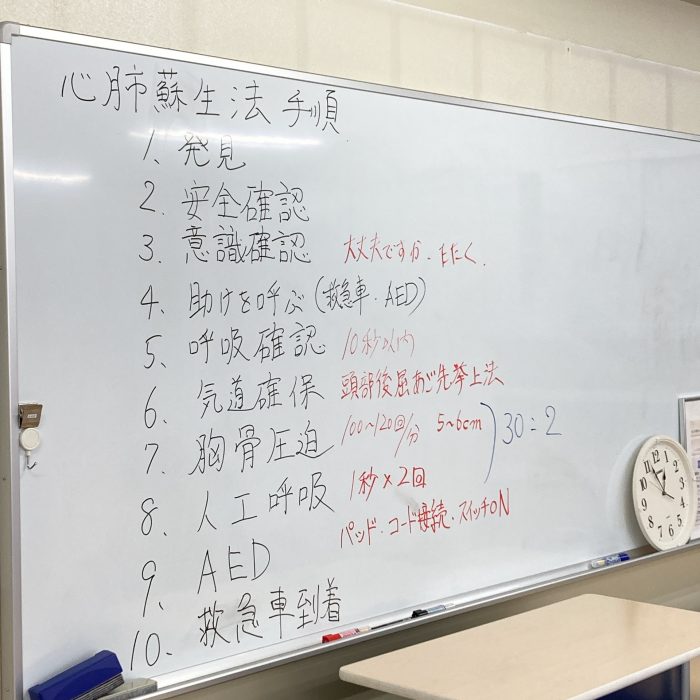 心肺蘇生法 手順
1、発見
2. 安全確認
3. 意識確認 大丈夫ですか. たたく.
4. 助けを呼ぶ(救急車・AED)
5、呼吸確認 10秒以内
6、気道確保 頭部後屈あご先挙上法
7、胸骨圧迫 100~120回/分 5~6cm ) 30:2
8、人工呼吸 1秒×2回
9、AED パッド・コード接続・スイッチON
10、救急車到着
12
1
2
3
4
5
6
7
8
9
10
11